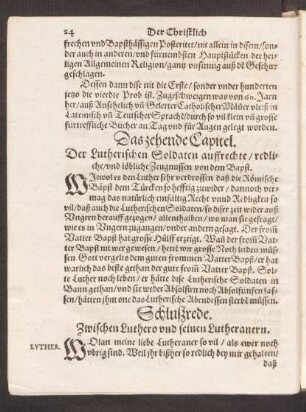 24 Der Christlich
frechen vnd Bapsthässigen Posteritet / nit allein in disem / son-
der auch in anderen / vnd fürnembsten Hauptstucken der hey-
ligen Allgemeinen Religion / gantz vnsinnig auß dẽ Geschirr
geschlagen.
Dessen dann dise nit die Erste / sonder vnder hunderten
jetzo die vierdte Prob ist. Zugeschweigen was von 60. Jaren
her / auß Ansehelich vñ Gelerter Catholischer Mäñer fleiß in
Lateinisch vñ Teutscher Sprach / durch so vil klein vñ grosse
fürtreffliche Bücher an Tag vnd für Augen gelegt worden.
Das zehende Capitel.
Der Lutherischen Soldaten auffrechte / redli-
che / vnd löbliche Zeugnussen von dem Bapst.
WJewol es den Luther sehr verdrossen daß die Römische
Bäpst dem Türcken so hefftig zuwider / dannoch ver-
mag das natürlich einfältig Recht vnnd Redligkeit so
vil / daß auch die Lutherischen Soldaten / so diser zeit wider auß
Vngern herauff gezogen / allenthalben / wo man sie gefragt /
wie es in Vngern zugangen / onder andern gesagt. Der from̃
Vatter Bapst hat grosse Hülff erzeigt. Wañ der from̃ Vat-
ter Bapst nit wer gewesen / hettẽ wir grosse Noth leiden müs-
sen Gott vergelts dem guten frommen Vatter Bapst / er hat
warlich das beste gethan der gute from̃ Vatter Bapst. Sol-
te Luther noch leben / er hätte dise Lutherische Soldaten in
Bann gethan / vnd sie weder Absolfieren noch Absolfünfen las-
sen / hätten jhm one das Lutherische Abendessen sterbẽ müssen.
Schlußrede.
Zwischen Luthero vnd seinen Lutheranern.
LVTHER. WOlan meine liebe Lutheraner so vil / als ewer noch
vbrig sind. Weil jhr bißher so redlich bey mir gehalten /
daß